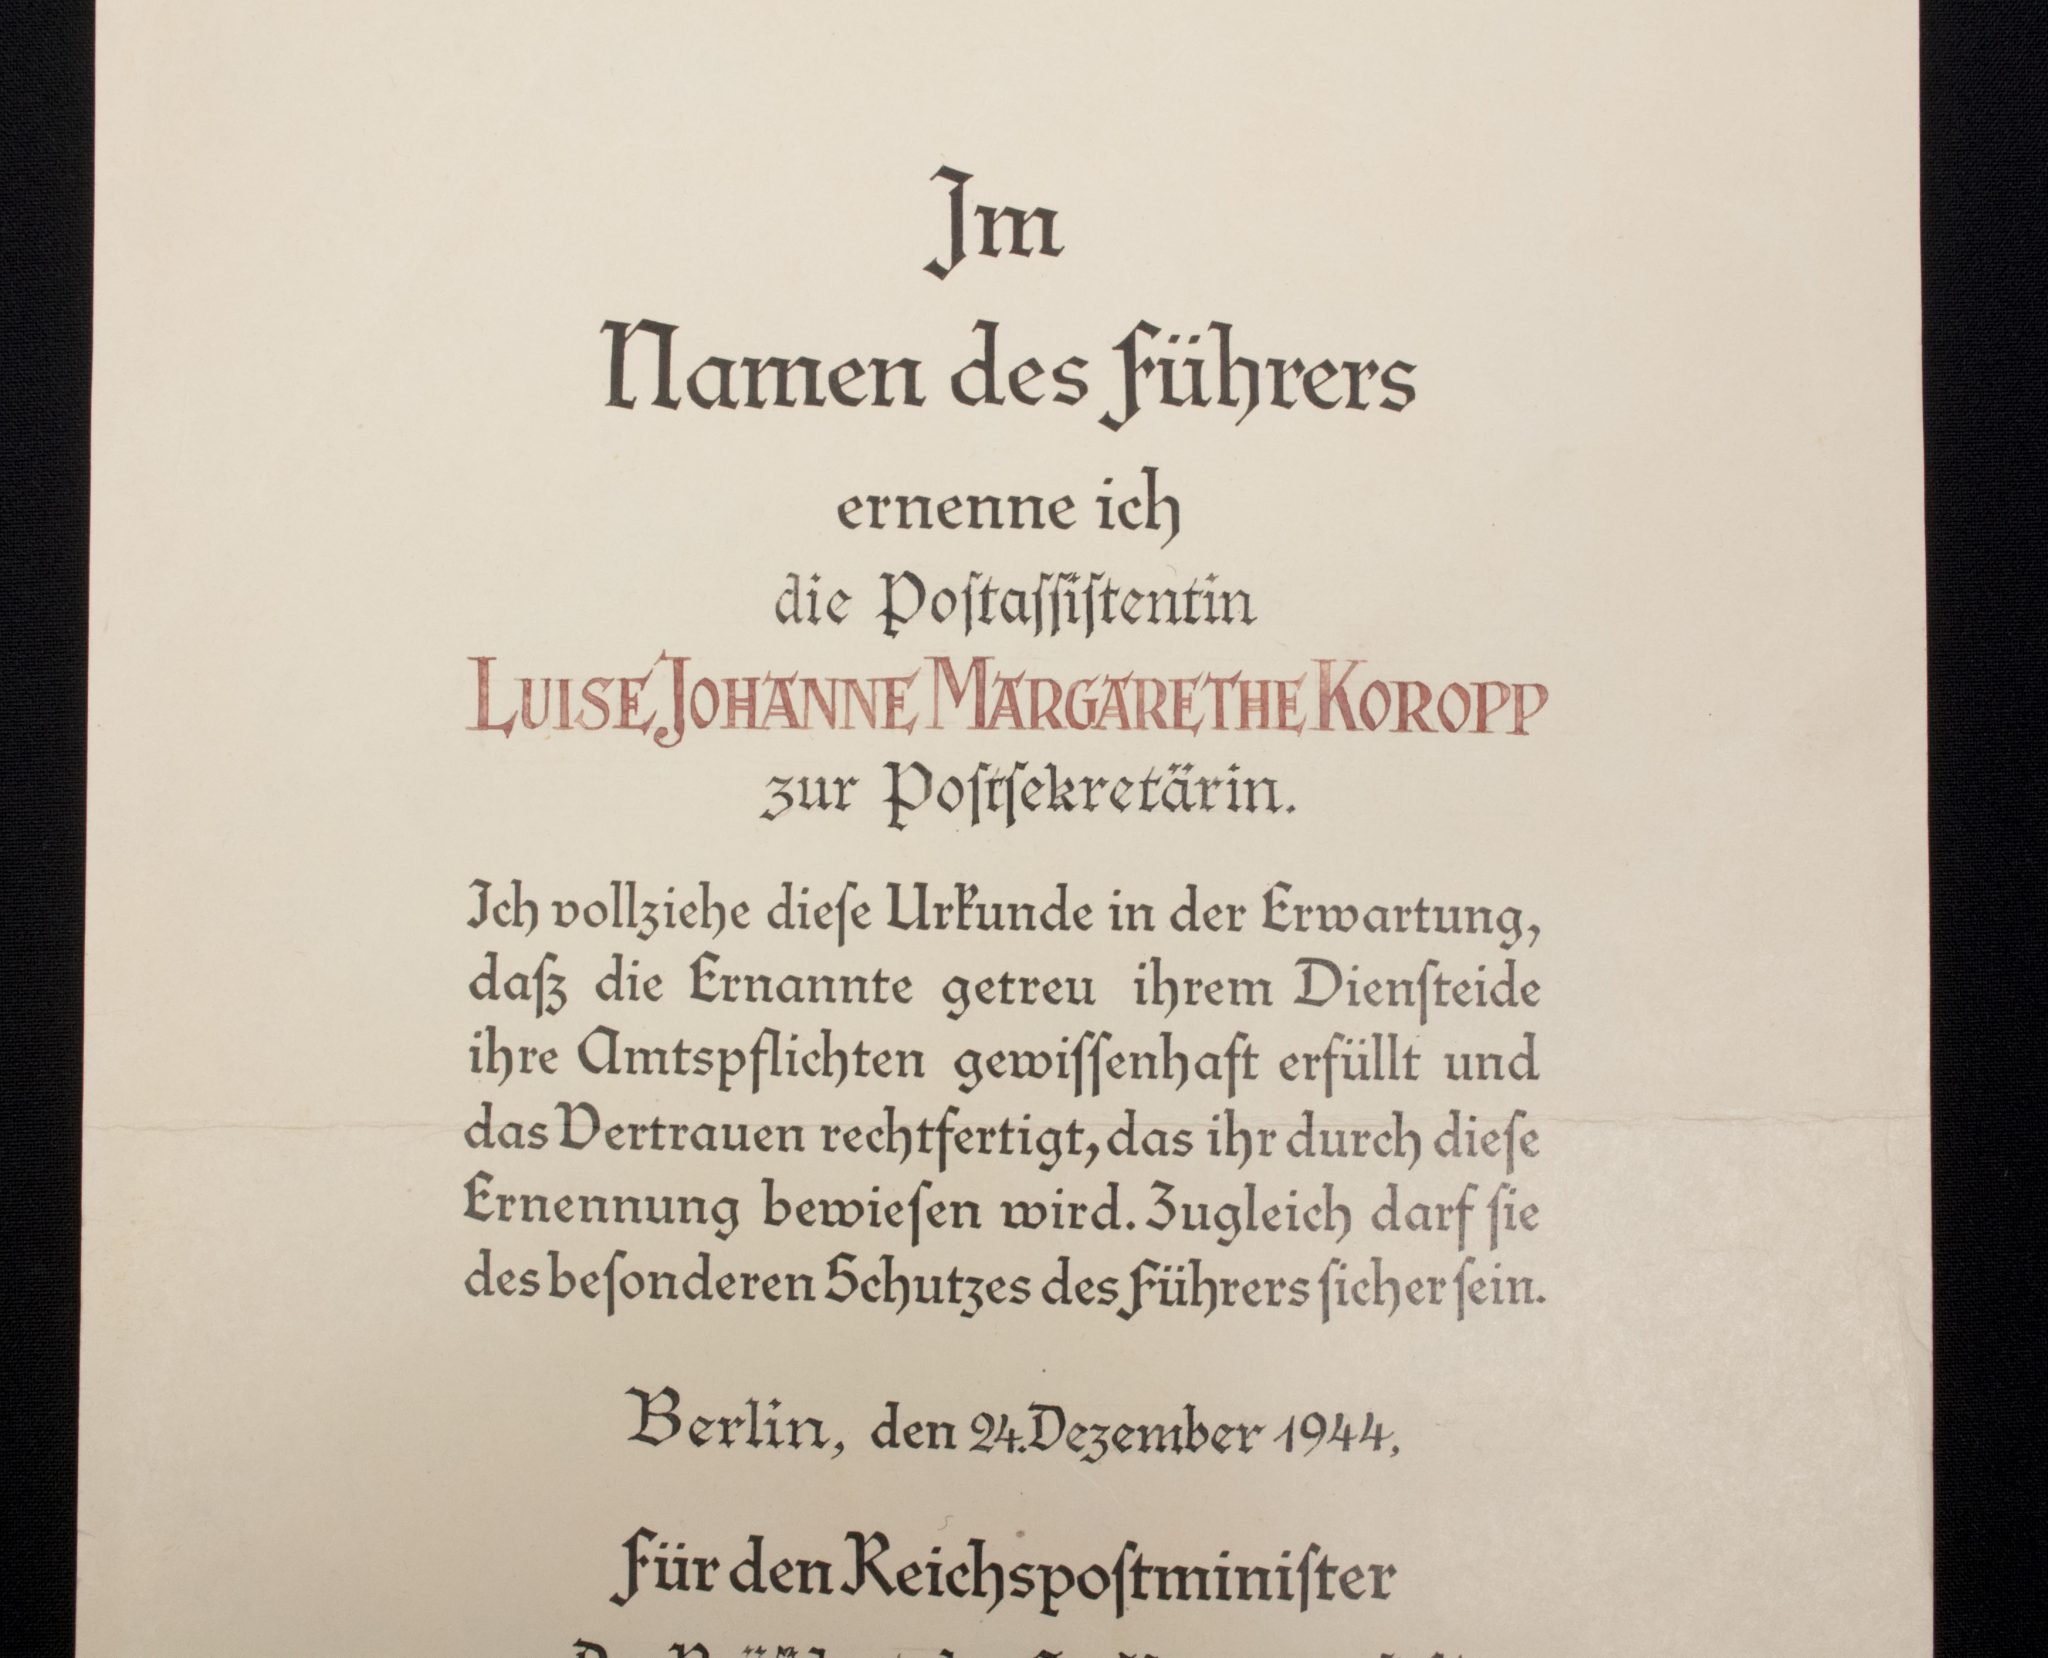 Im
Namen des Führers
ernenne ich
die Poſtaſſiſtentin
LUISE JOHANNE MARGARETHE KOROPP
zur Poſtſekretärin.
Ich vollziehe dieſe Urkunde in der Erwartung,
daß die Ernannte getreu ihrem Dienſteide
ihre Amtspflichten gewiſſenhaft erfüllt und
das Vertrauen rechtfertigt, das ihr durch dieſe
Ernennung bewieſen wird. Zugleich darf ſie
des beſonderen Schutzes des Führers ſicher ſein.
Berlin, den 24. Dezember 1944.
Für den Reichspoſtminiſter